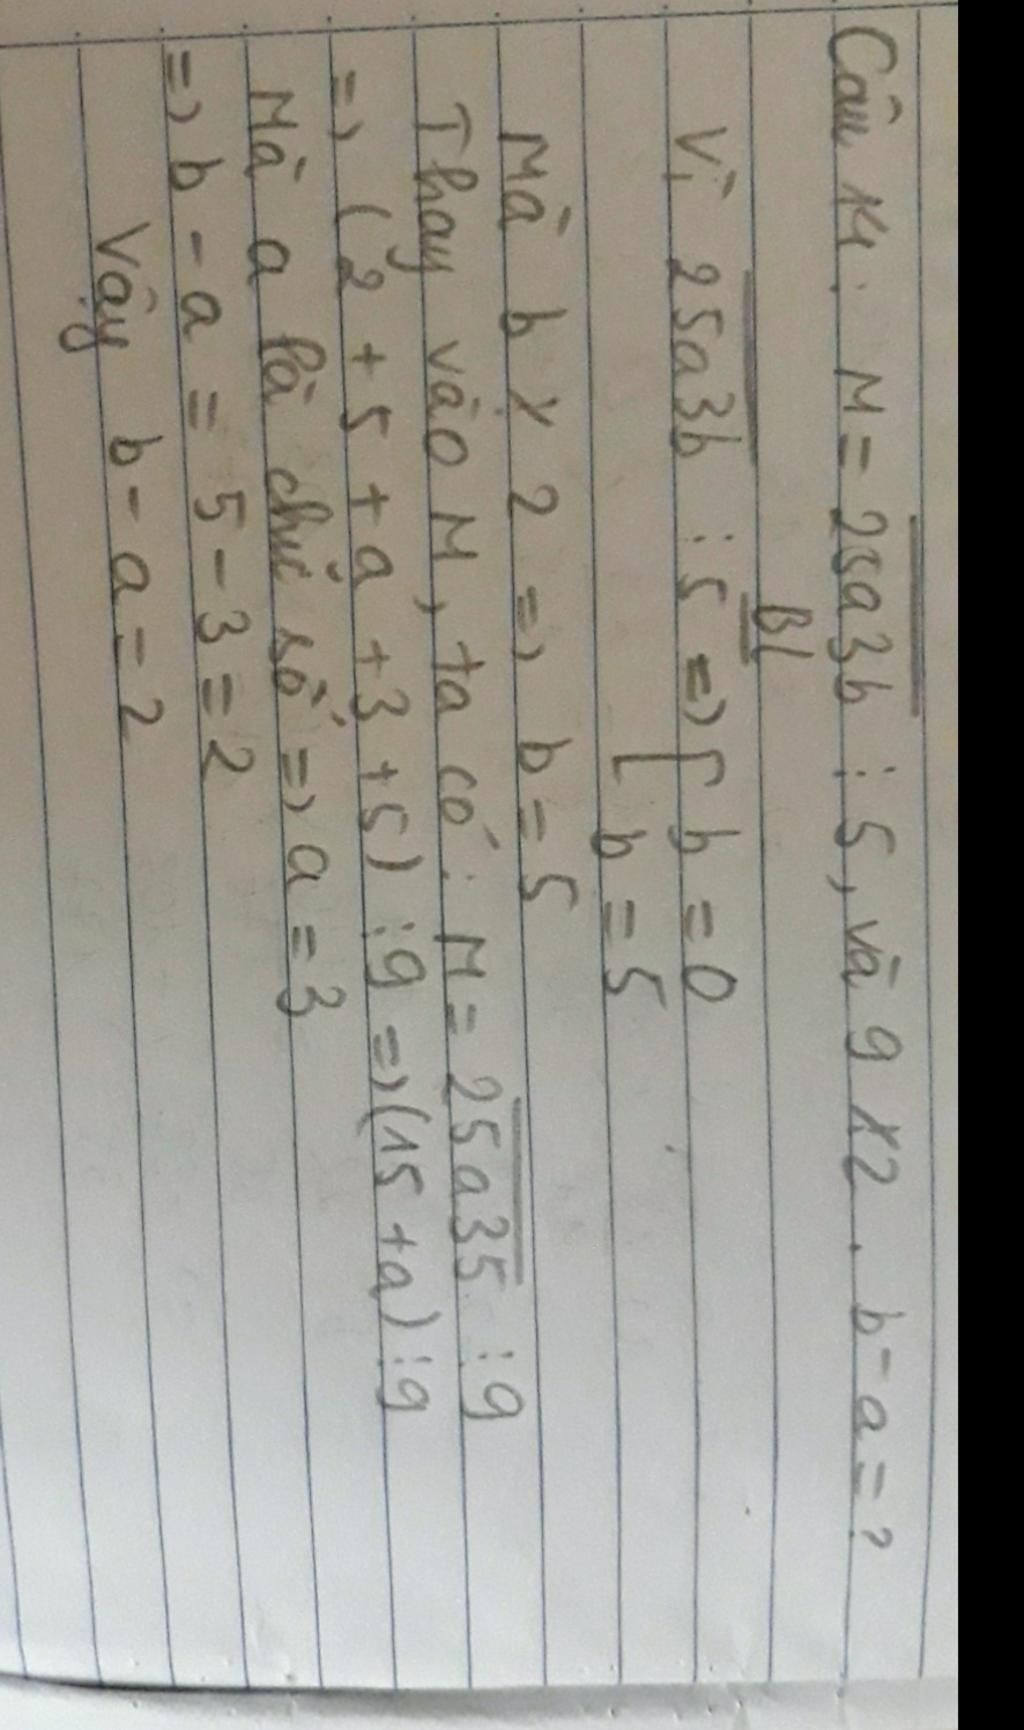 Câu 14: M = 25a3b ⋮ 5, và 9 ⋮̸ 2. b - a = ?
BL
Vì 25a3b ⋮ 5 => [ b = 0
b = 5
Mà b ⋮̸ 2 => b = 5
Thay vào M, ta có: M = 25a35 ⋮ 9
=> (2 + 5 + a + 3 + 5) ⋮ 9 => (15 + a) ⋮ 9
Mà a là chữ số => a = 3
=> b - a = 5 - 3 = 2
Vậy b - a = 2